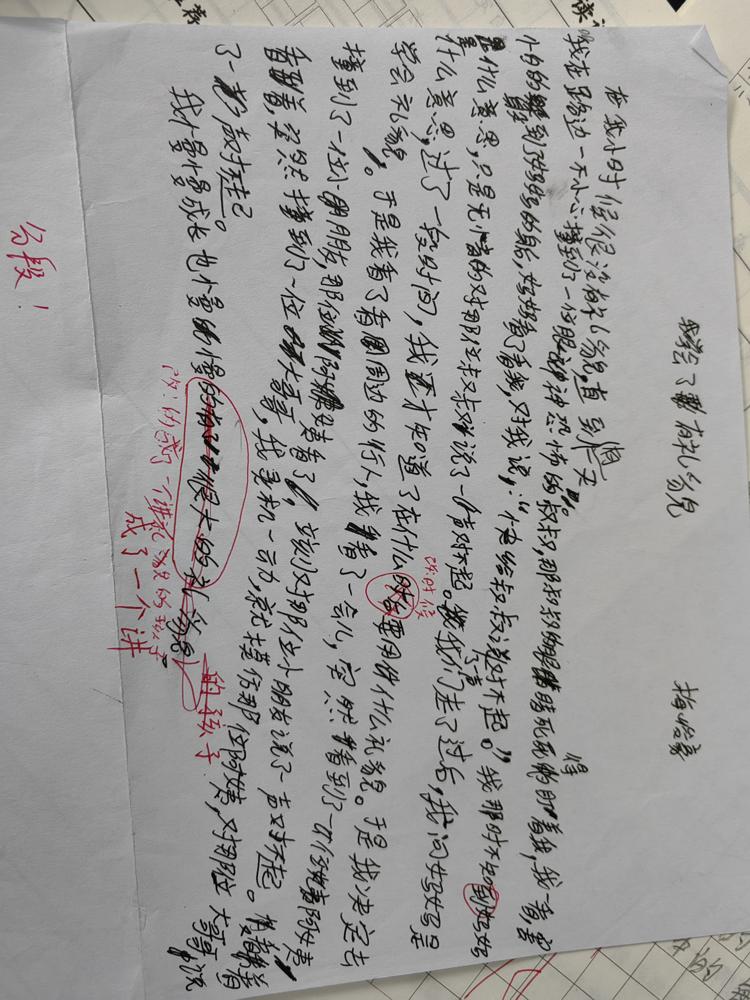 我学会了有礼貌 梅怡豪
在我小时候很没有礼貌,直到有一天
我在路边一不小心撞到了一位眼神恐怖的叔叔,那叔叔的眼睛死死得盯着我,我一看,害
怕的躲到了妈妈的身后,妈妈看了看我,对我说:“快给叔叔说对不起。”我那时不知到妈妈
是什么意思,只是无情的对那位叔叔说了一声对不起。我们走了过后,我问妈妈是
什么意思,过了一段时间,我还才知道了在什么时后要用什么礼貌。于是我决定去
改:时候
学会礼貌。于是我看了看周边的行人,我看了一会儿,突然看到了一位阿姨,
撞到了一位小朋朋友,那位阿姨看了,立刻对那位小朋友说了一声对不起。看着
看着,突然撞到了一位大哥哥,我灵机一动,就模仿那位阿姨,对那位大哥哥说
了一声对不起。
我慢慢成长也慢慢的有了很大的礼貌 的孩子
改:的成了一个讲礼貌的孩子
成了一个讲
分段!